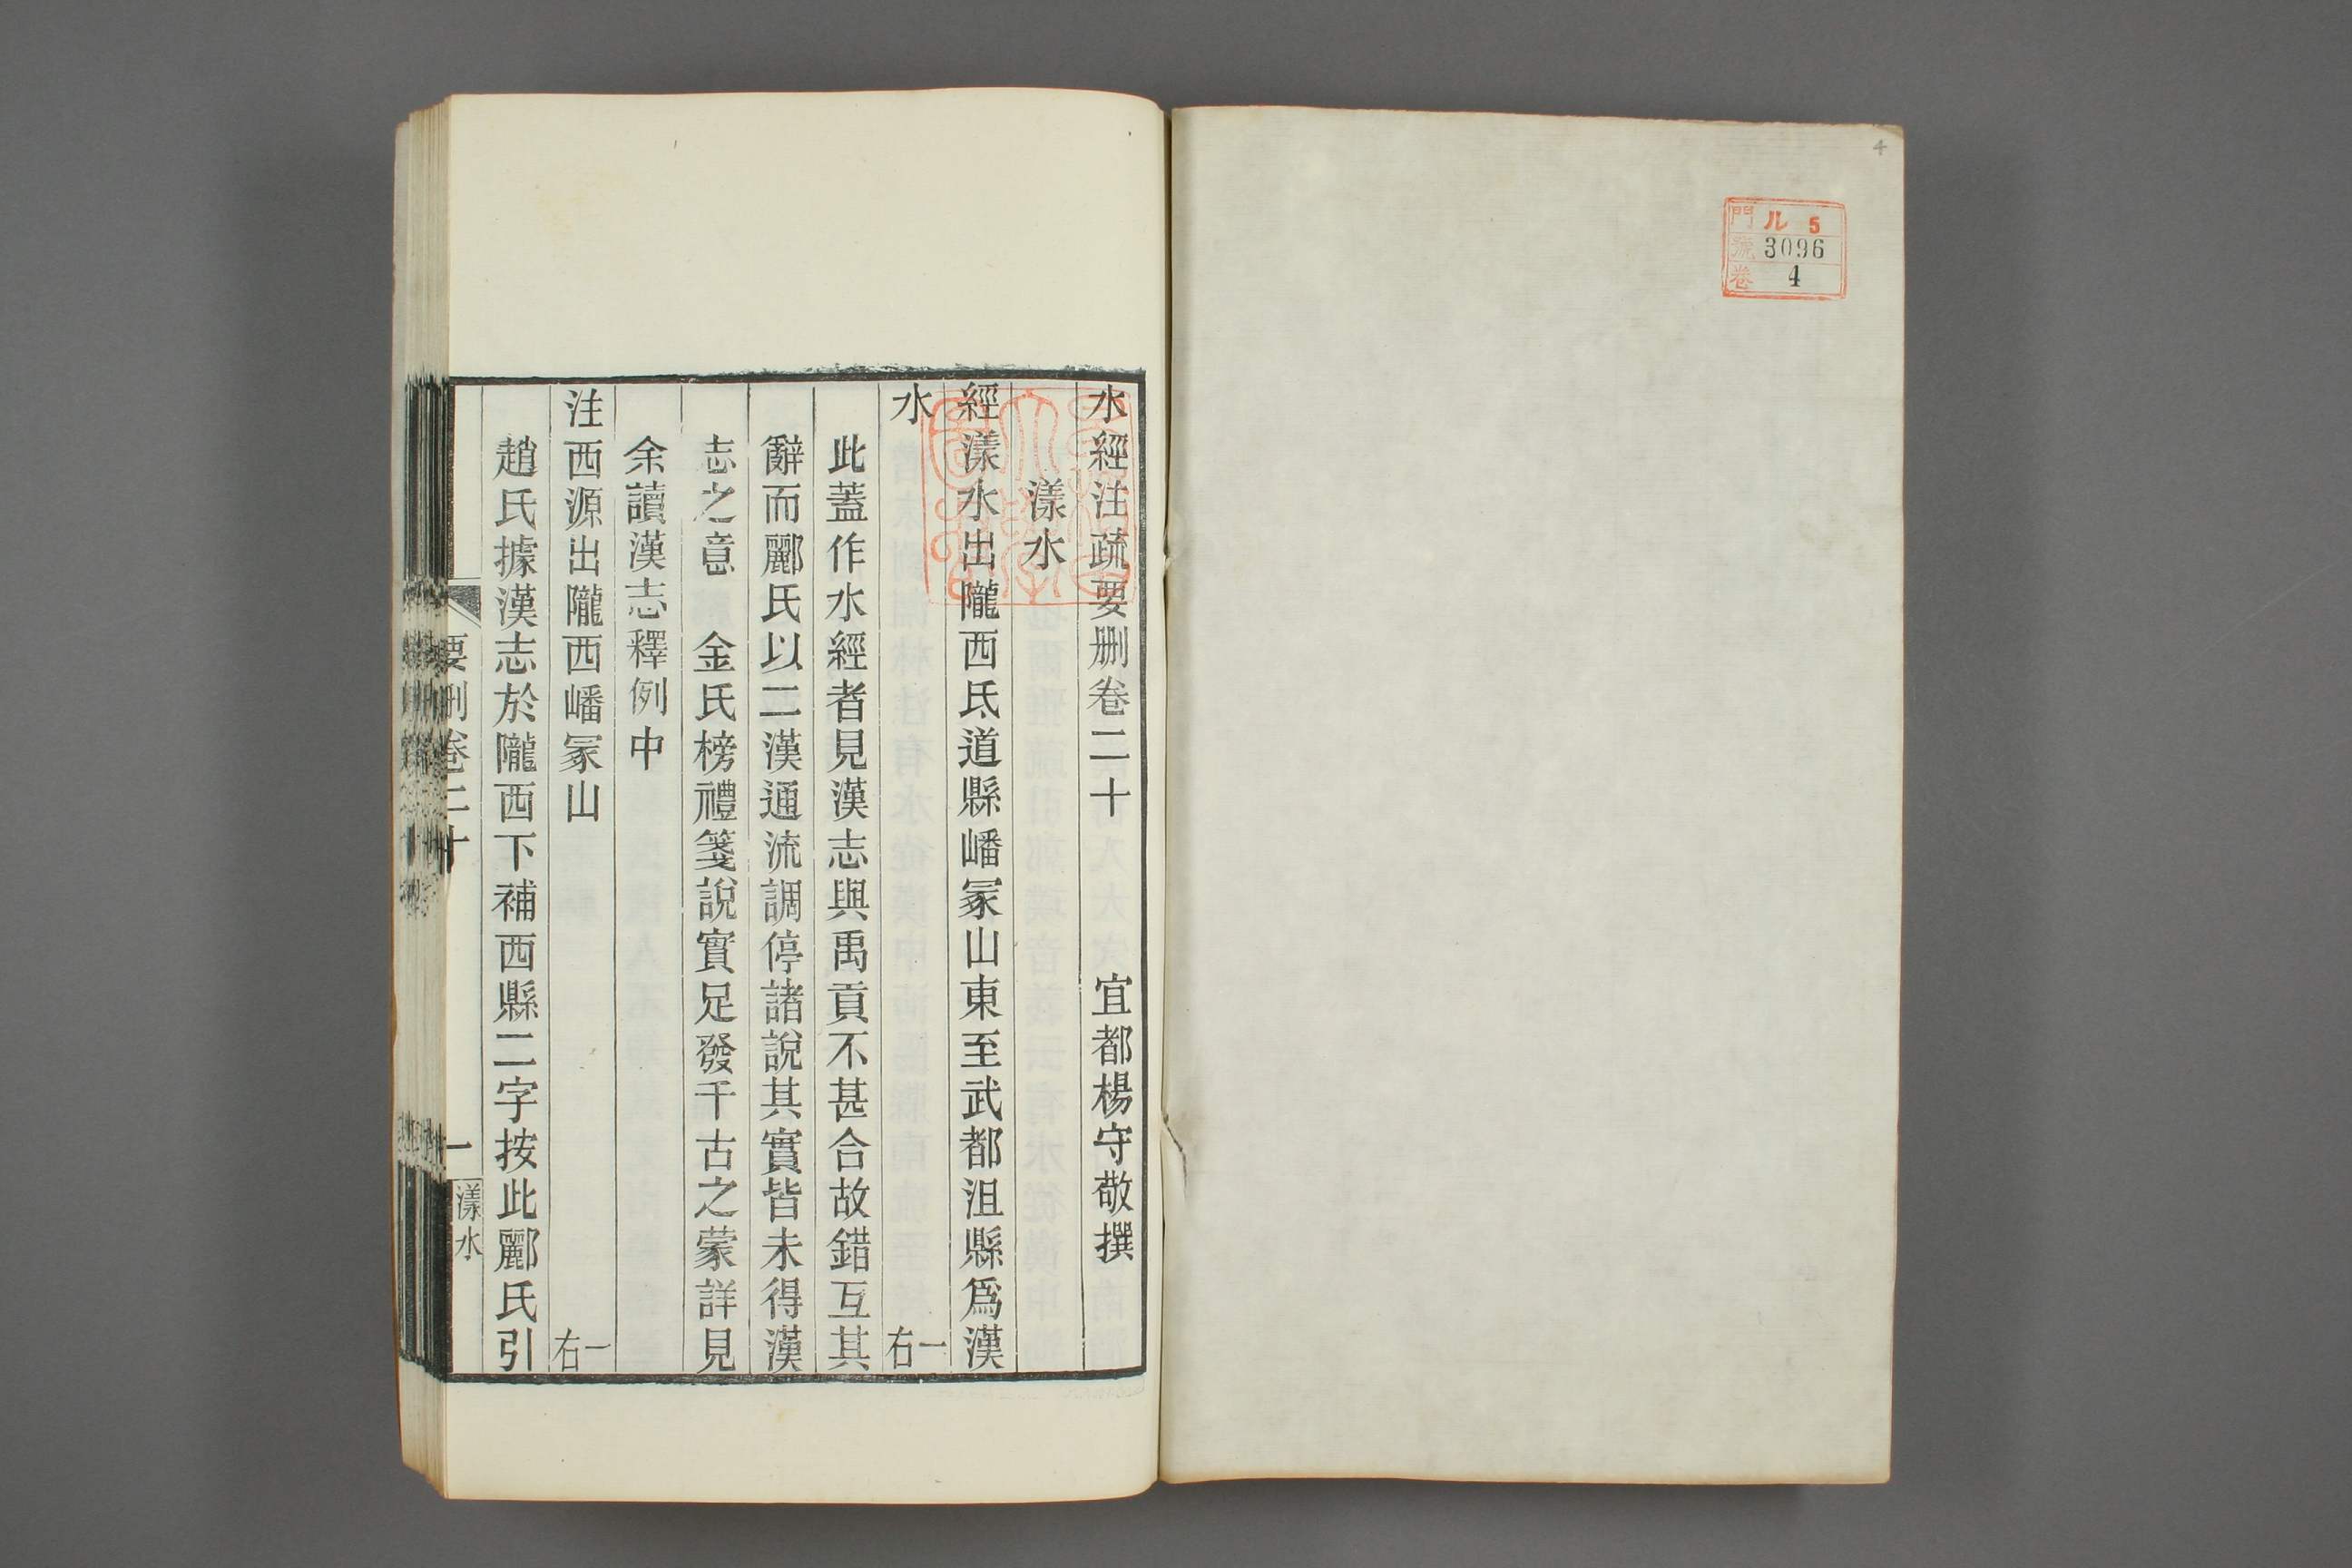 4
門 ル 5
號 3096
卷 4
水經注疏要刪卷二十 宜都楊守敬撰
漾水
經漾水出隴西氐道縣嶓冢山東至武都沮縣爲漢
水 一右
此蓋作水經者見漢志與禹貢不甚合故錯互其
辭而酈氏以二漢通流調停諸說其實皆未得漢
志之意 金氏榜禮箋說實足發千古之蒙詳見
余讀漢志釋例中
注西源出隴西嶓冢山 一右
趙氏據漢志於隴西下補西縣二字按此酈氏引
要刪卷二十 一 漾水